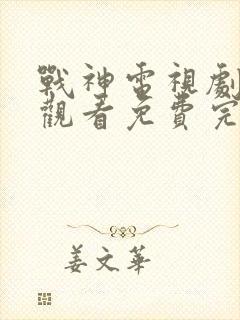 戰神電視劇
觀看免費完
姜文華